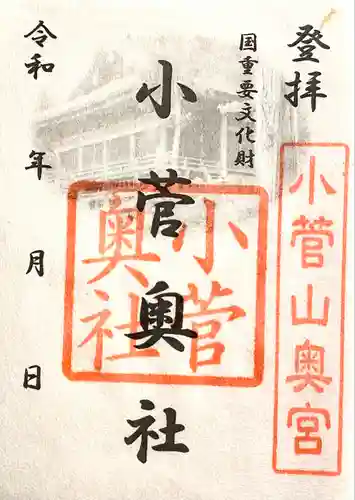 登拝
小菅山奥宮
国重要文化財
小菅奥社
小菅
奥社
令和 年 月 日